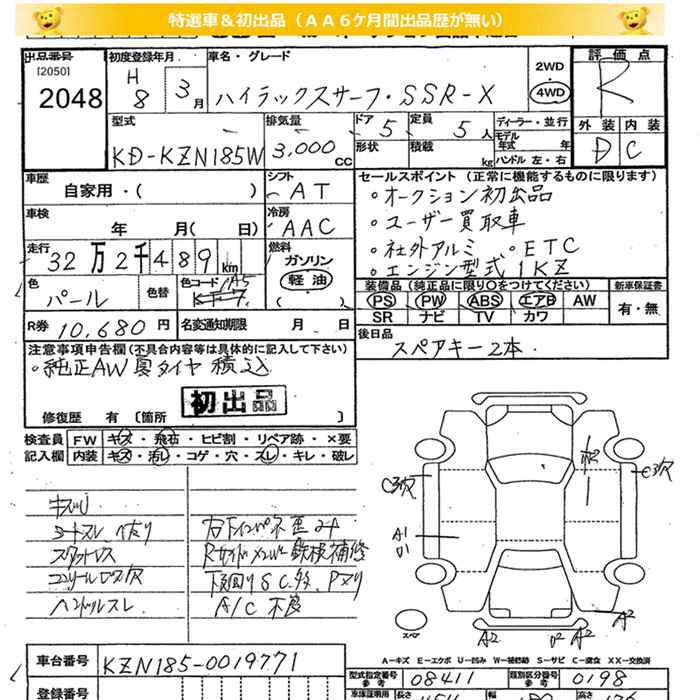 特選車＆初出品（ＡＡ6ケ月間出品歴が無い）
出品番号 初度登録年月 車名・グレード 2WD 評価点
[2050] H
2048 8 3月 ハイラックスサーフ・SSR-X 4WD R
型式 排気量 ドア 5 定員 5人 ディーラー・並行 外装 内装
KD-KZN185W 3,000cc 形状 積載 kg モデル年式 年 ハンドル 左・右 D C
車歴 シフト セールスポイント（正常に機能するものに限ります）
自家用・（ ） AT ・オークション初出品
車検 冷房 ・ユーザー買取車
年 月（ 日） AAC ・社外アルミ ・ETC
走行 燃料 ・エンジン型式1KZ
32万2千489km ガソリン 軽油 （ ）
色 色替 色コード 装備品（純正品に限り〇をつけてください） 新車保証書
パール PS PW ABS エアB AW 有・無
SR ナビ TV カワ
R券 10,680円 名変通知期限 月 日 後日品
スペアキー2本
注意事項申告欄（不具合内容等は具体的に記入して下さい）
・純正AW 夏タイヤ 積込
初出品
修復歴 有〔箇所 〕
検査員 FW キズ・飛石・ヒビ割・リペア跡・×要
記入欄 内装 キズ・汚レ・コゲ・穴・スレ・キレ・破レ
下回りSC多.Pヌリ
ハンドルスレ A/C不良
C3穴 C3穴
A1
A2
スペア A2
A－キズ E－エクボ U－凹み W－補修跡 S－サビ C－腐食 XX－交換済
車台番号 KZN185-0019771
型式指定番号 参考 08411 類別区分番号 参考 0198
登録番号 車体証明用 長さ 幅 高さ